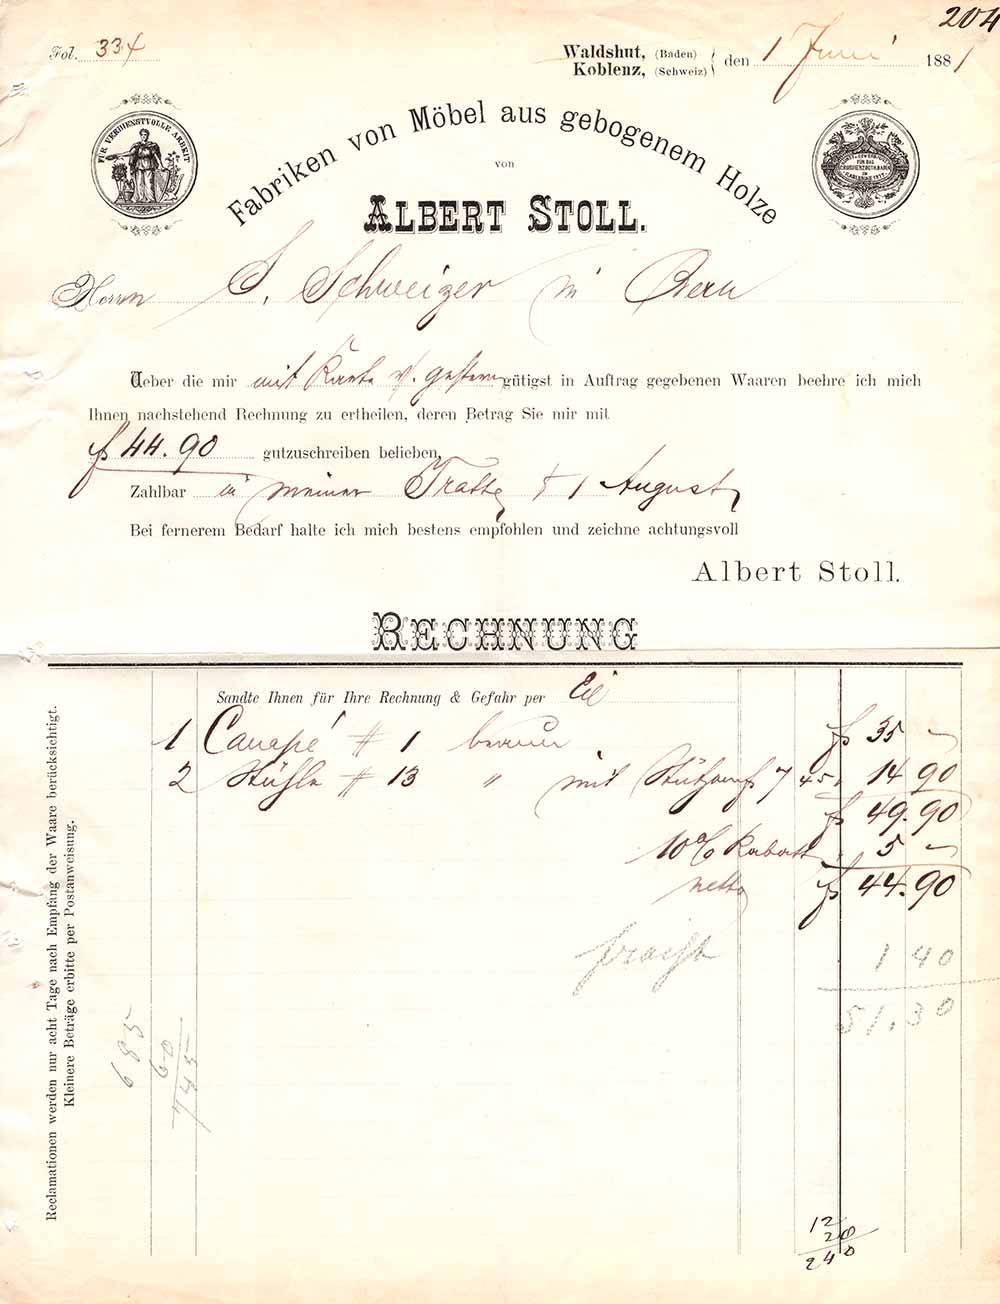 204
Fol. 334
Waldshut, (Baden)
Koblenz, (Schweiz)
den 1 Juni 1881
FÜR VERDIENSTVOLLE ARBEIT
Fabriken von Möbel aus gebogenem Holze
von
ALBERT STOLL.
Herrn S. Schweizer in Bern
Ueber die mir mit Karte v. gestern gütigst in Auftrag gegebenen Waaren beehre ich mich
Ihnen nachstehend Rechnung zu ertheilen, deren Betrag Sie mir mit
fs 44.90 gutzuschreiben belieben,
Zahlbar in meiner Tratte 1 August
Bei fernerem Bedarf halte ich mich bestens empfohlen und zeichne achtungsvoll
Albert Stoll.
RECHNUNG
Sandte Ihnen für Ihre Rechnung & Gefahr per Eil
1 Canapé # 1 braun fs 35 –
2 Stühle # 13 " mit 7 45 14 90
fs 49.90
10 % Rabatt " 5 –
netto fs 44.90
fracht 1 40
51.30
685
60
745
12
20
240
Reclamationen werden nur acht Tage nach Empfang der Waare berücksichtigt.
Kleinere Beträge erbitte per Postanweisung.